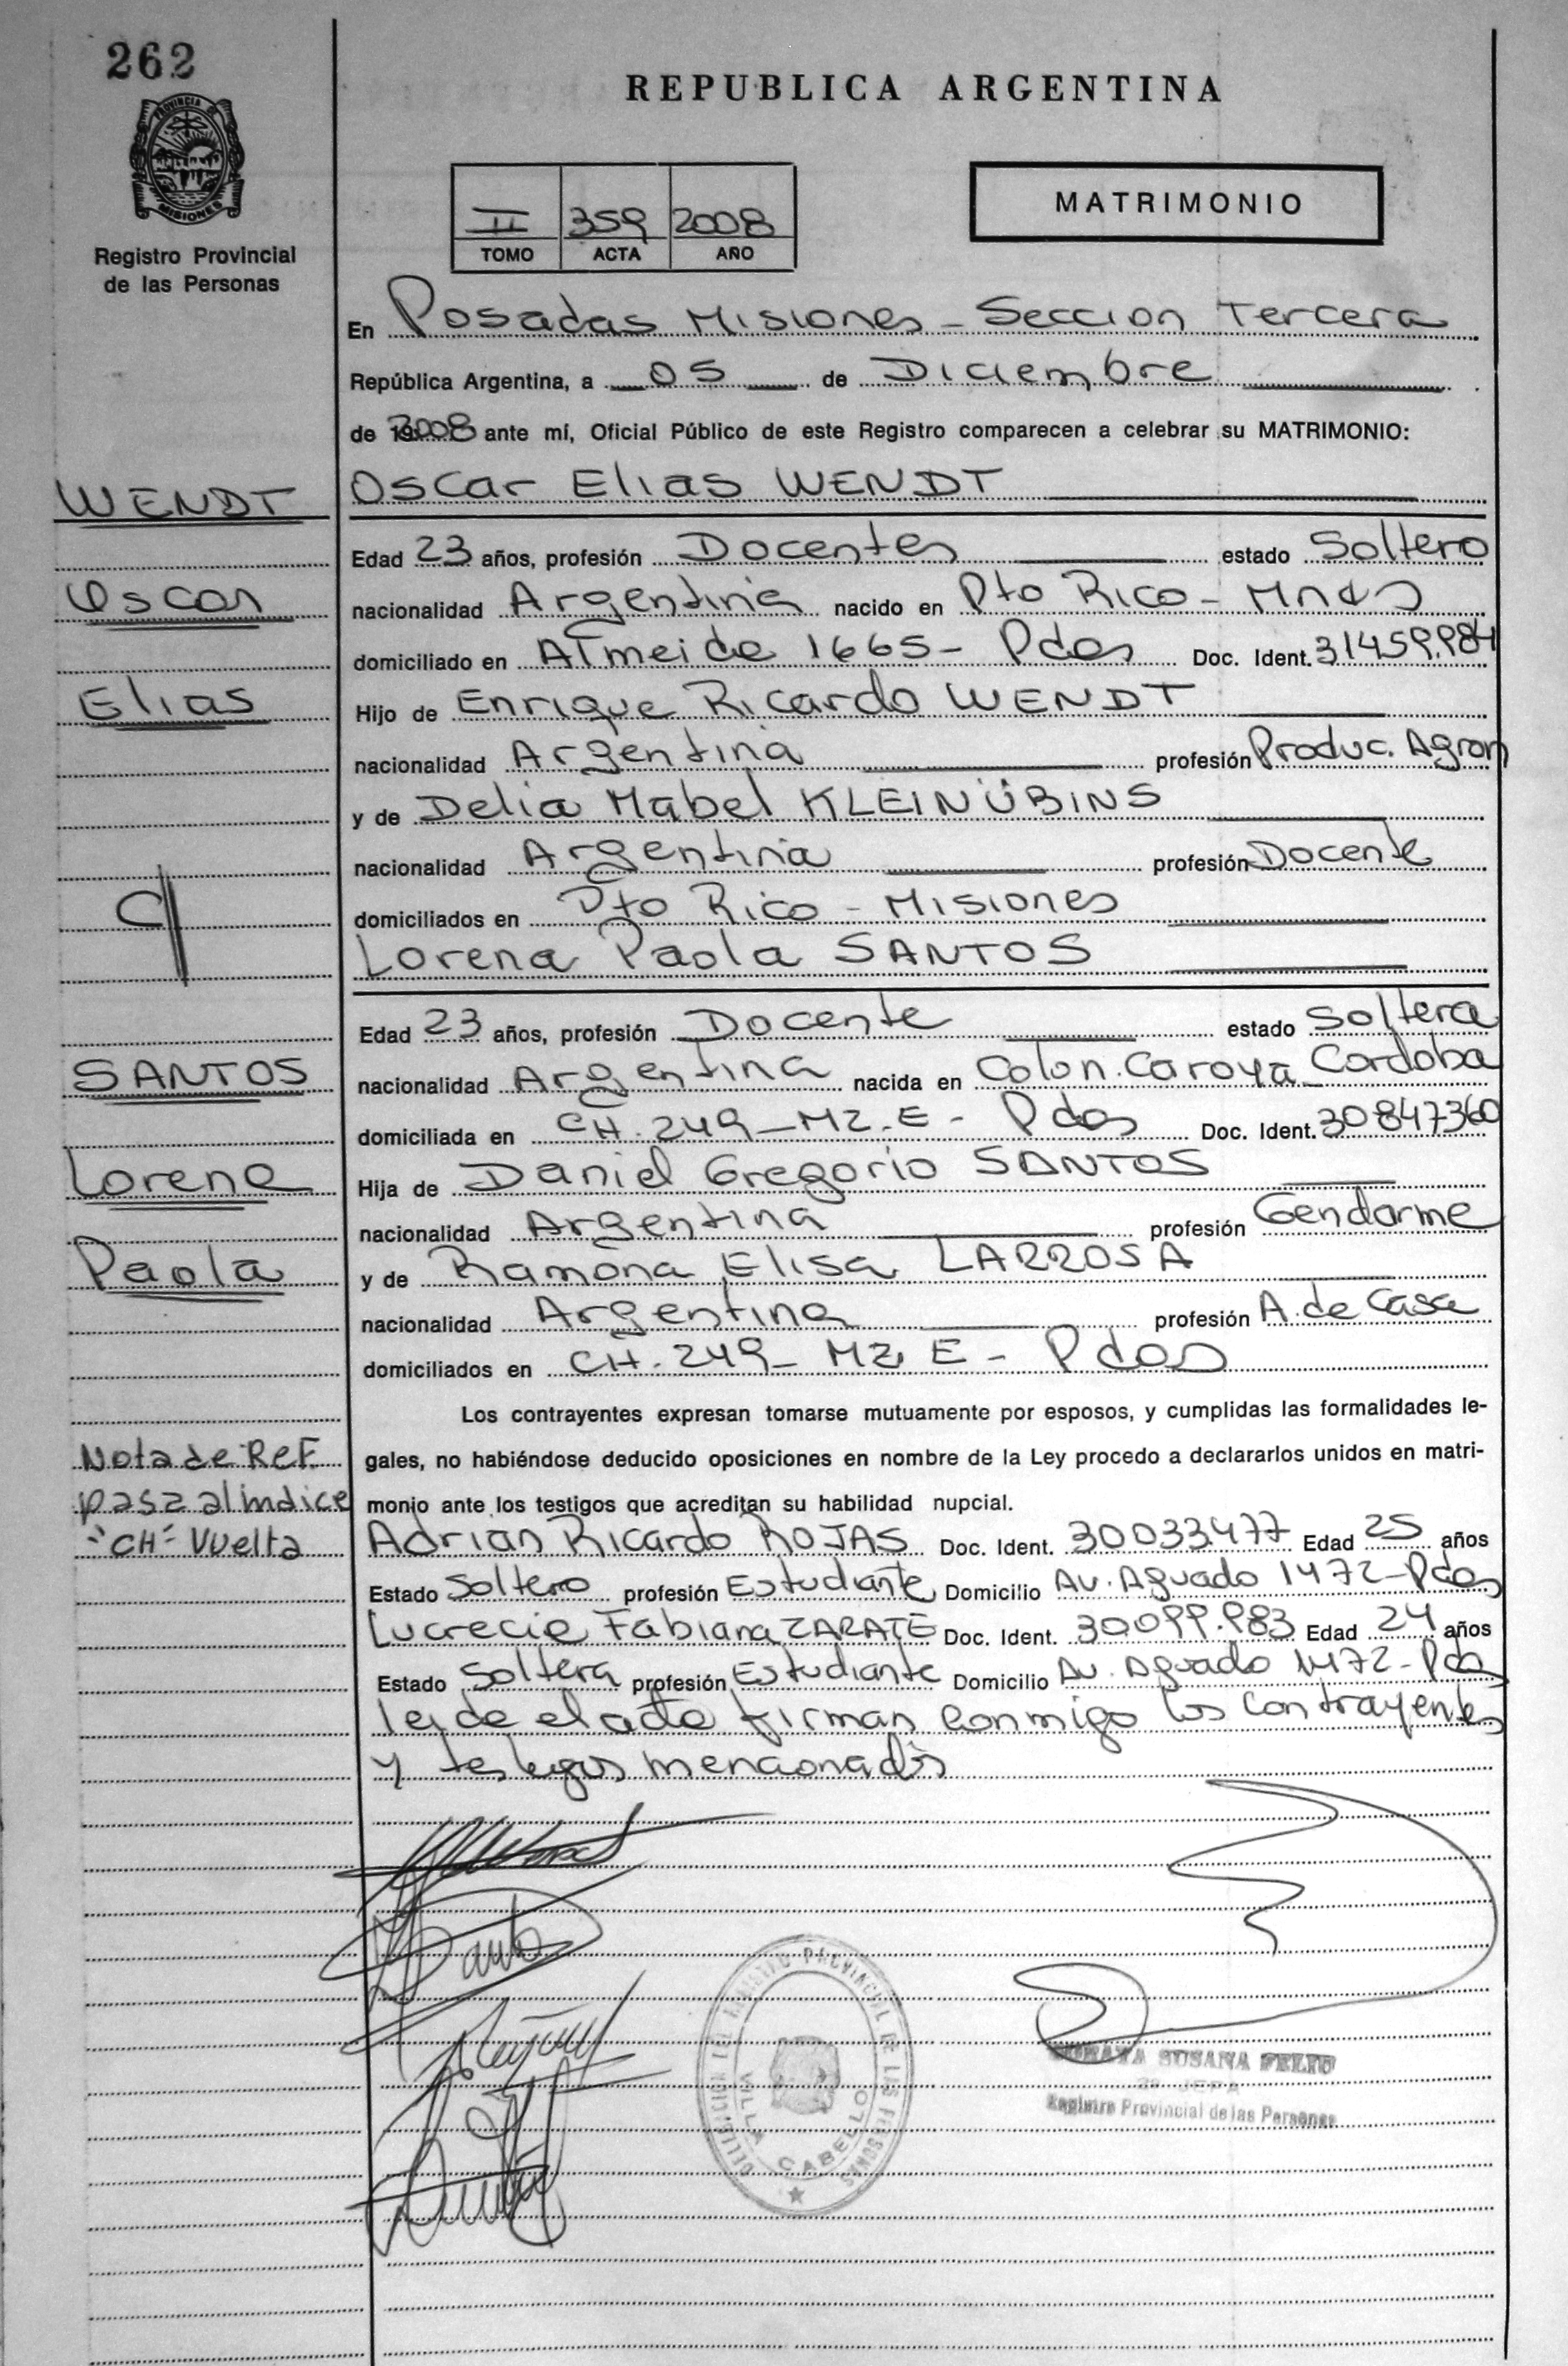 262
PROVINCIA DE
MISIONES
Registro Provincial
de las Personas
REPUBLICA ARGENTINA
II 359 2008
TOMO ACTA AÑO
MATRIMONIO
En Posadas Misiones - Seccion Tercera
República Argentina, a 05 de Diciembre
de 2008 ante mí, Oficial Público de este Registro comparecen a celebrar su MATRIMONIO:
WENDT
Oscar Elias WENDT
Edad 23 años, profesión Docentes estado Soltero
Oscar
nacionalidad Argentina nacido en Pto Rico - Mnes
domiciliado en Almeida 1665 - Pdas Doc. Ident. 31459.984
Elias
Hijo de Enrique Ricardo WENDT
nacionalidad Argentina profesión Produc. Agron
y de Delia Mabel KLEINÜBINS
nacionalidad Argentina profesión Docente
C/
domiciliados en Pto Rico - Misiones
Lorena Paola SANTOS
Edad 23 años, profesión Docente estado Soltera
SANTOS
nacionalidad Argentina nacida en Colon. Caroya Cordoba
domiciliada en CH. 249 - Mz. E - Pdas Doc. Ident. 30847360
Lorena
Hija de Daniel Gregorio SANTOS
nacionalidad Argentina profesión Gendarme
Paola
y de Ramona Elisa LARROSA
nacionalidad Argentina profesión A. de Casa
domiciliados en CH. 249 - Mz E - Pdas
Los contrayentes expresan tomarse mutuamente por esposos, y cumplidas las formalidades le-
Nota de Ref.
gales, no habiéndose deducido oposiciones en nombre de la Ley procedo a declararlos unidos en matri-
pasa al indice
monio ante los testigos que acreditan su habilidad nupcial.
"CH" Vuelta
Adrian Ricardo ROJAS Doc. Ident. 30033477 Edad 25 años
Estado Soltero profesión Estudiante Domicilio Av. Aguado 1472 - Pdas
Lucrecia Fabiana ZARATE Doc. Ident. 30099.983 Edad 24 años
Estado Soltera profesión Estudiante Domicilio Av. Aguado 1472 - Pdas
leida el acta firman conmigo los contrayentes
y testigos mencionados
REGISTRO PROVINCIAL DE LAS PERSONAS
VILLA CABELLO
SUSANA FELIU
JEFA
Registro Provincial de las Personas